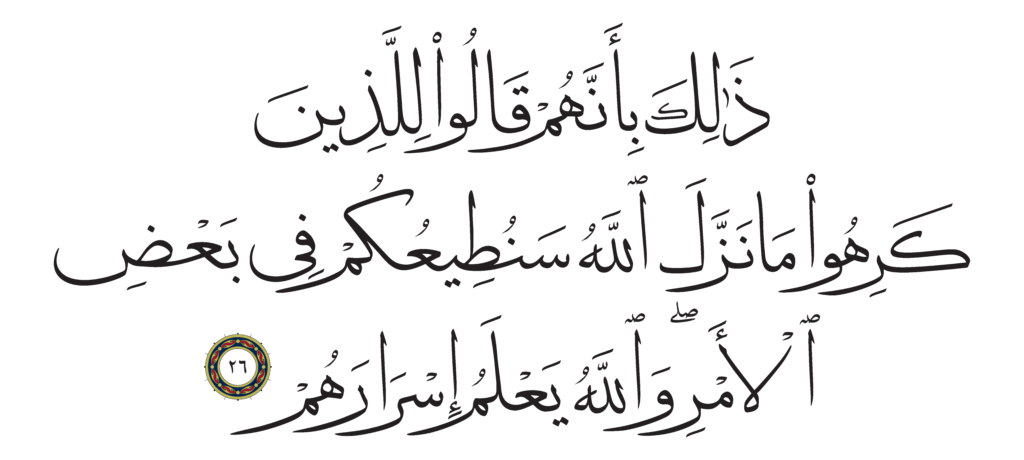 ذَٰلِكَ بِأَنَّهُمْ قَالُوا۟ لِلَّذِينَ
كَرِهُوا۟ مَا نَزَّلَ ٱللَّهُ سَنُطِيعُكُمْ فِى بَعْضِ
ٱلْأَمْرِ ۖ وَٱللَّهُ يَعْلَمُ إِسْرَارَهُمْ ٢٦